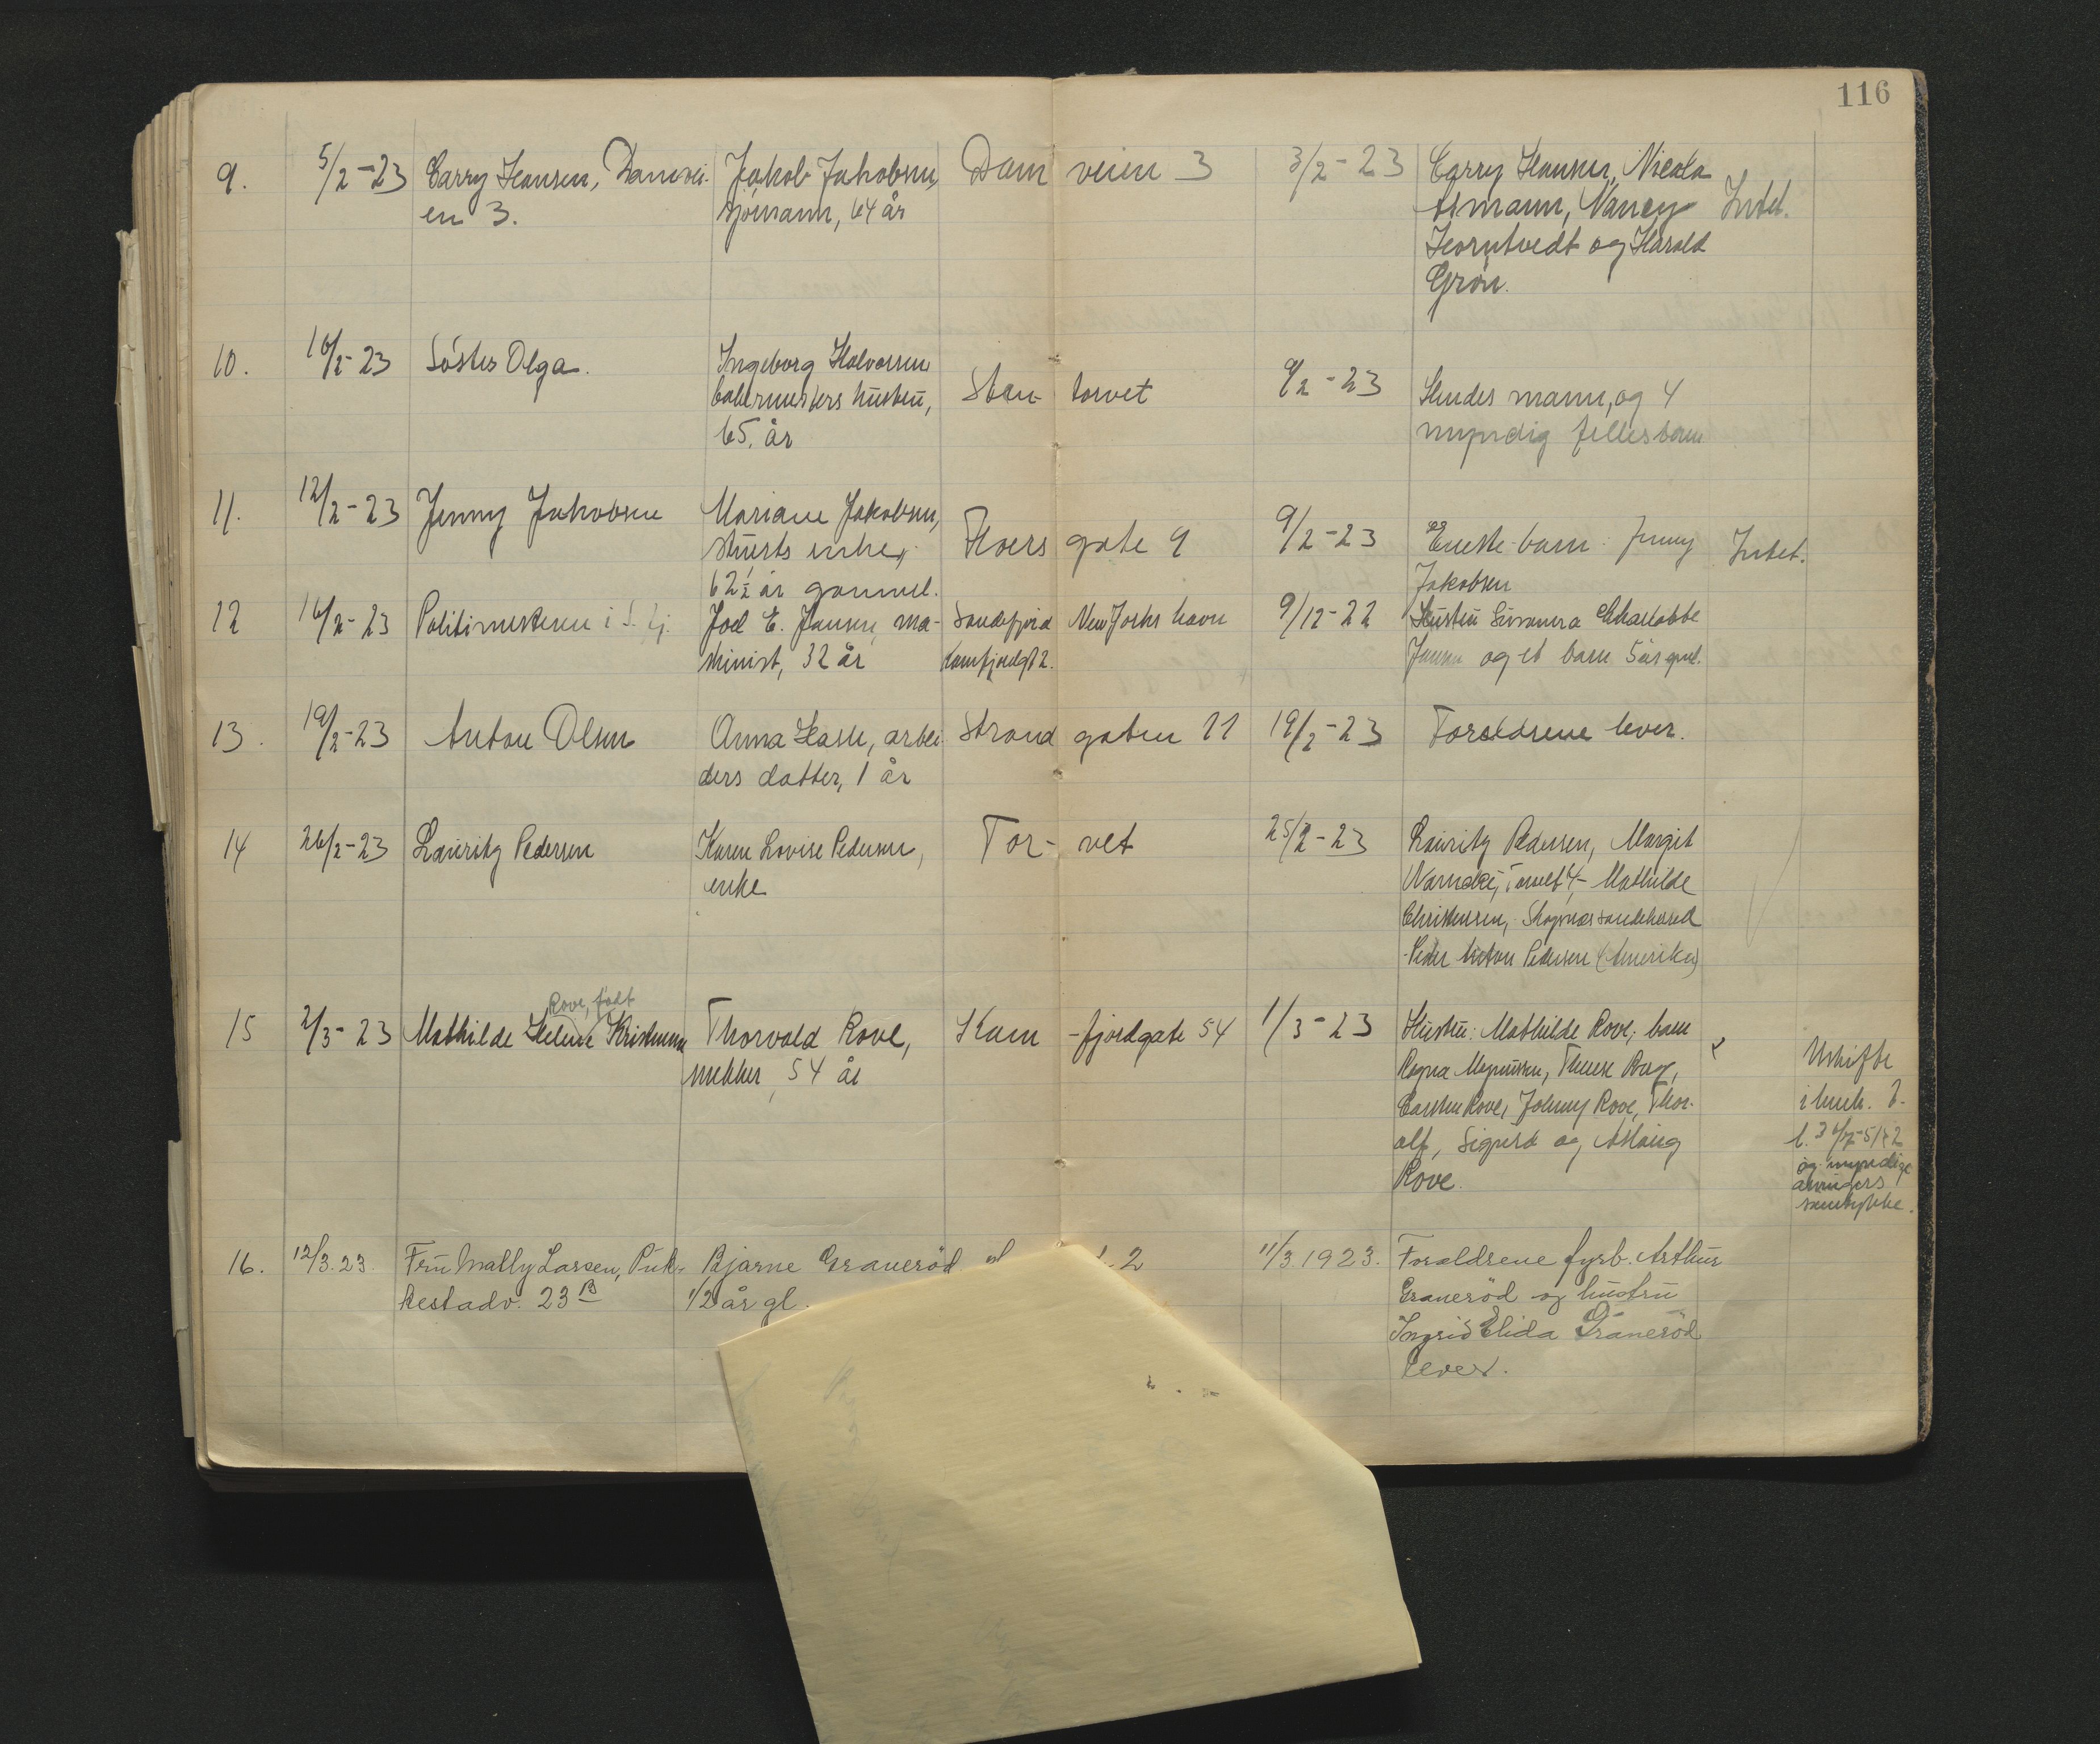 116
9. 5/2-23 Carry Hansen, Damvei- Jakob Jakobsen, Dam veien 3 3/2-23 Carry Hansen, Nicola
en 3. sjømann, 64 år Asmann, Nancy Intet.
Horntvedt og Harald
Grøn.
10. 10/2-23 Søster Olga. Ingeborg Halvorsen
hustru, Sten- torvet 9/2-23 Hendes mann, og 4
65 år myndig felles barn
11. 12/2-23 Jenny Jakobsen Mariane Jakobsen,
enke, Hvers gate 9 9/2-23 Eneste barn: Jenny Intet.
62½ år gammel. Jakobsen
12 16/2-23 Politimesteren i S. fj. Joel E. Jansen, ma- Sandefjord New Yorks havn 9/12-22 Hustru Susanna Charlotte
skinist, 32 år Kamfjordgt 2. Jansen og et barn 5 år gml.
13. 19/2-23 Anton Olsen Anna Hasle, arbei- Strand gaten 11 19/2-23 Forældrene lever.
ders datter, 1 år
14 26/2-23 Lauritz Pedersen Karen Lovise Pedersen, Tor- vet 25/2-23 Lauritz Pedersen, Margit
enke Torvet 4, Mathilde
Christensen, Sandeherred
Peder Anton Pedersen (Amerika)
Rove, født
15 2/3-23 Mathilde Helene Kristensen Thorvald Rove, Kam -fjordgate 54 1/3-23 Hustru: Mathilde Rove; barn
54 år Ragna Magnussen, Therese Berg, Uskifte
Carsten Rove, Johnny Rove, Thor- i henh. t.
alf, Sigurd og Aslaug l.
Rove. og myndige
arvingers
samtykke.
16. 12/3.23. Fru Mally Larsen, Puk- Bjarne Granerød 2 11/3 1923. Foreldrene fyrb. Arthur
kestadv. 23 B 1/2 år gl. Granerød og hustru
Ingrid Elida Granerød
lever.